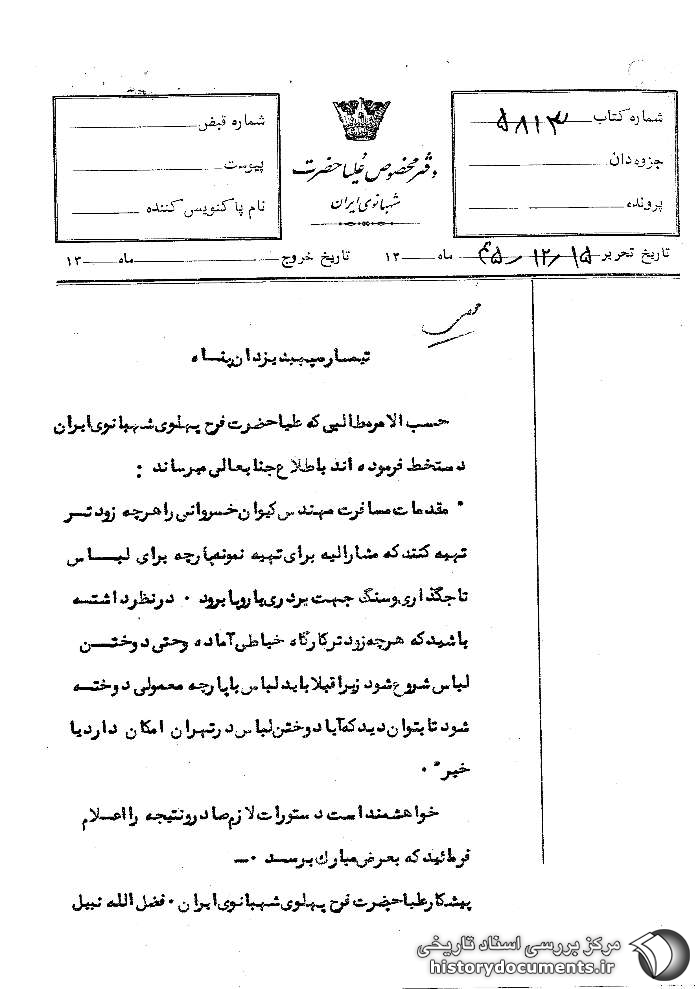 شماره کتاب ۵۸۱۳
جزوه دان
پرونده
دفتر مخصوص علیاحضرت
شهبانوی ایران
شماره قبض
پیوست
نام پاکنویس کننده
تاریخ تحریر ۴۵/۱۲/۱۵ ماه ۱۳
تاریخ خروج ماه ۱۳
تیمسار سپهبد یزدان پناه
حسب الامر مطالبی که علیاحضرت فرح پهلوی شهبانوی ایران
دستخط فرموده اند باطلاع جنابعالی میرساند :
" مقدمات مسافرت مهندس کیوان خسروانی را هرچه زودتر
تهیه کنند که مشارالیه برای تهیه نمونه پارچه برای لباس
تاجگذاری وسنگ جهت بردری باروپا برود . درنظر داشته
باشید که هرچه زودتر کارگاه خیاطی آماده وحتی دوختن
لباس شروع شود زیرا قبلا باید لباس با پارچه معمولی دوخته
شود تا بتوان دید که آیا دوختن لباس در تهران امکان دارد یا
خیر " .
خواهشمند است دستورات لازم صادر ونتیجه را اعلام
فرمائید که بعرض مبارك برسد .—
پیشکار علیاحضرت فرح پهلوی شهبانوی ایران . فضل الله نبیل
مرکز بررسی اسناد تاریخی
historydocuments.ir